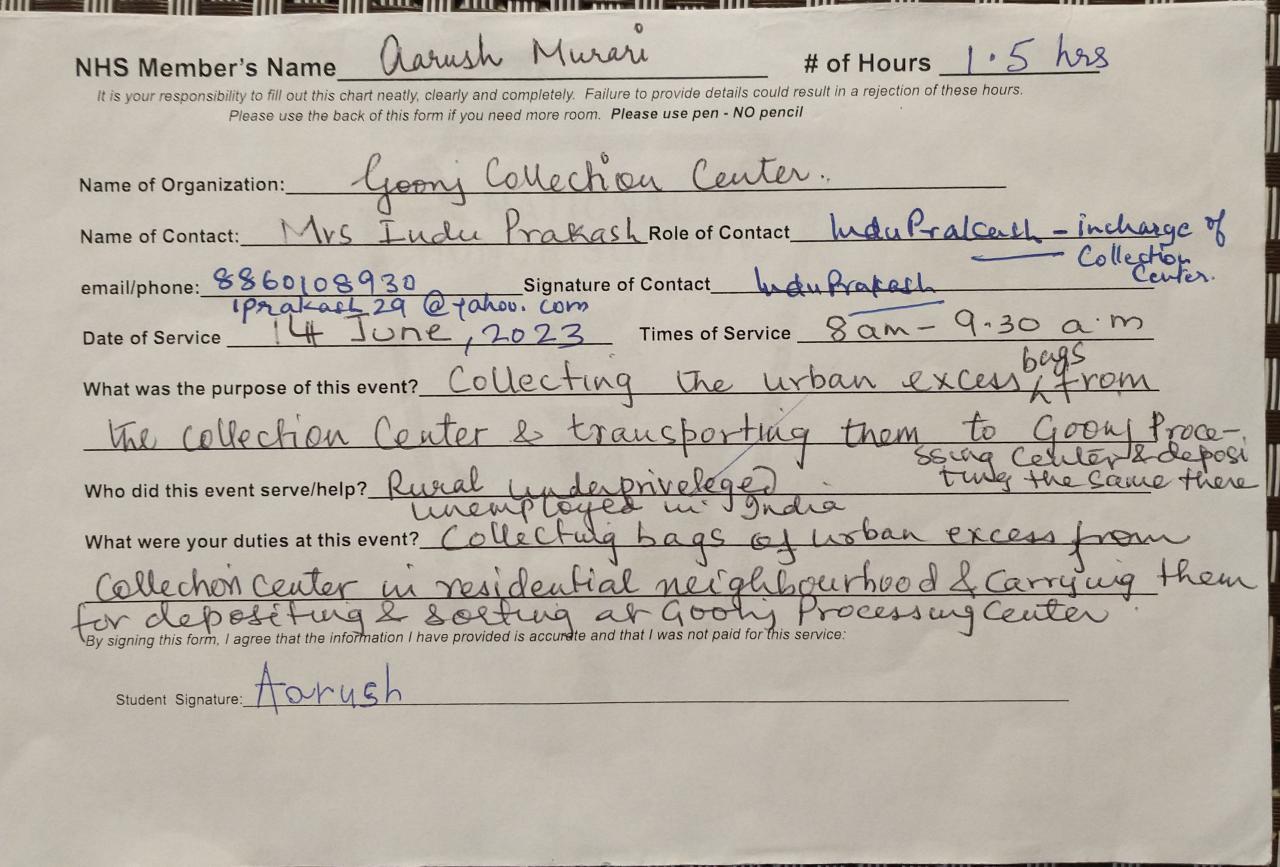 NHS Member's Name Aarush Murari # of Hours 1.5 hrs
It is your responsibility to fill out this chart neatly, clearly and completely. Failure to provide details could result in a rejection of these hours.
Please use the back of this form if you need more room. Please use pen - NO pencil
Name of Organization: Goonj Collection Center.
Name of Contact: Mrs Indu Prakash Role of Contact Indu Prakash - incharge of
Collection
Center.
email/phone: 8860108930 Signature of Contact Indu Prakash
iprakash29@yahoo.com
Date of Service 14 June, 2023 Times of Service 8 am - 9.30 a.m
What was the purpose of this event? Collecting the urban excess bags from
the collection Center & transporting them to Goonj Proce-
ssing Center & deposi
ting the same there
Who did this event serve/help? Rural underpriveleged
unemployed in India
What were your duties at this event? Collecting bags of urban excess from
Collection Center in residential neighbourhood & Carrying them
for depositing & sorting at Goonj Processing Center.
By signing this form, I agree that the information I have provided is accurate and that I was not paid for this service:
Student Signature: Aarush